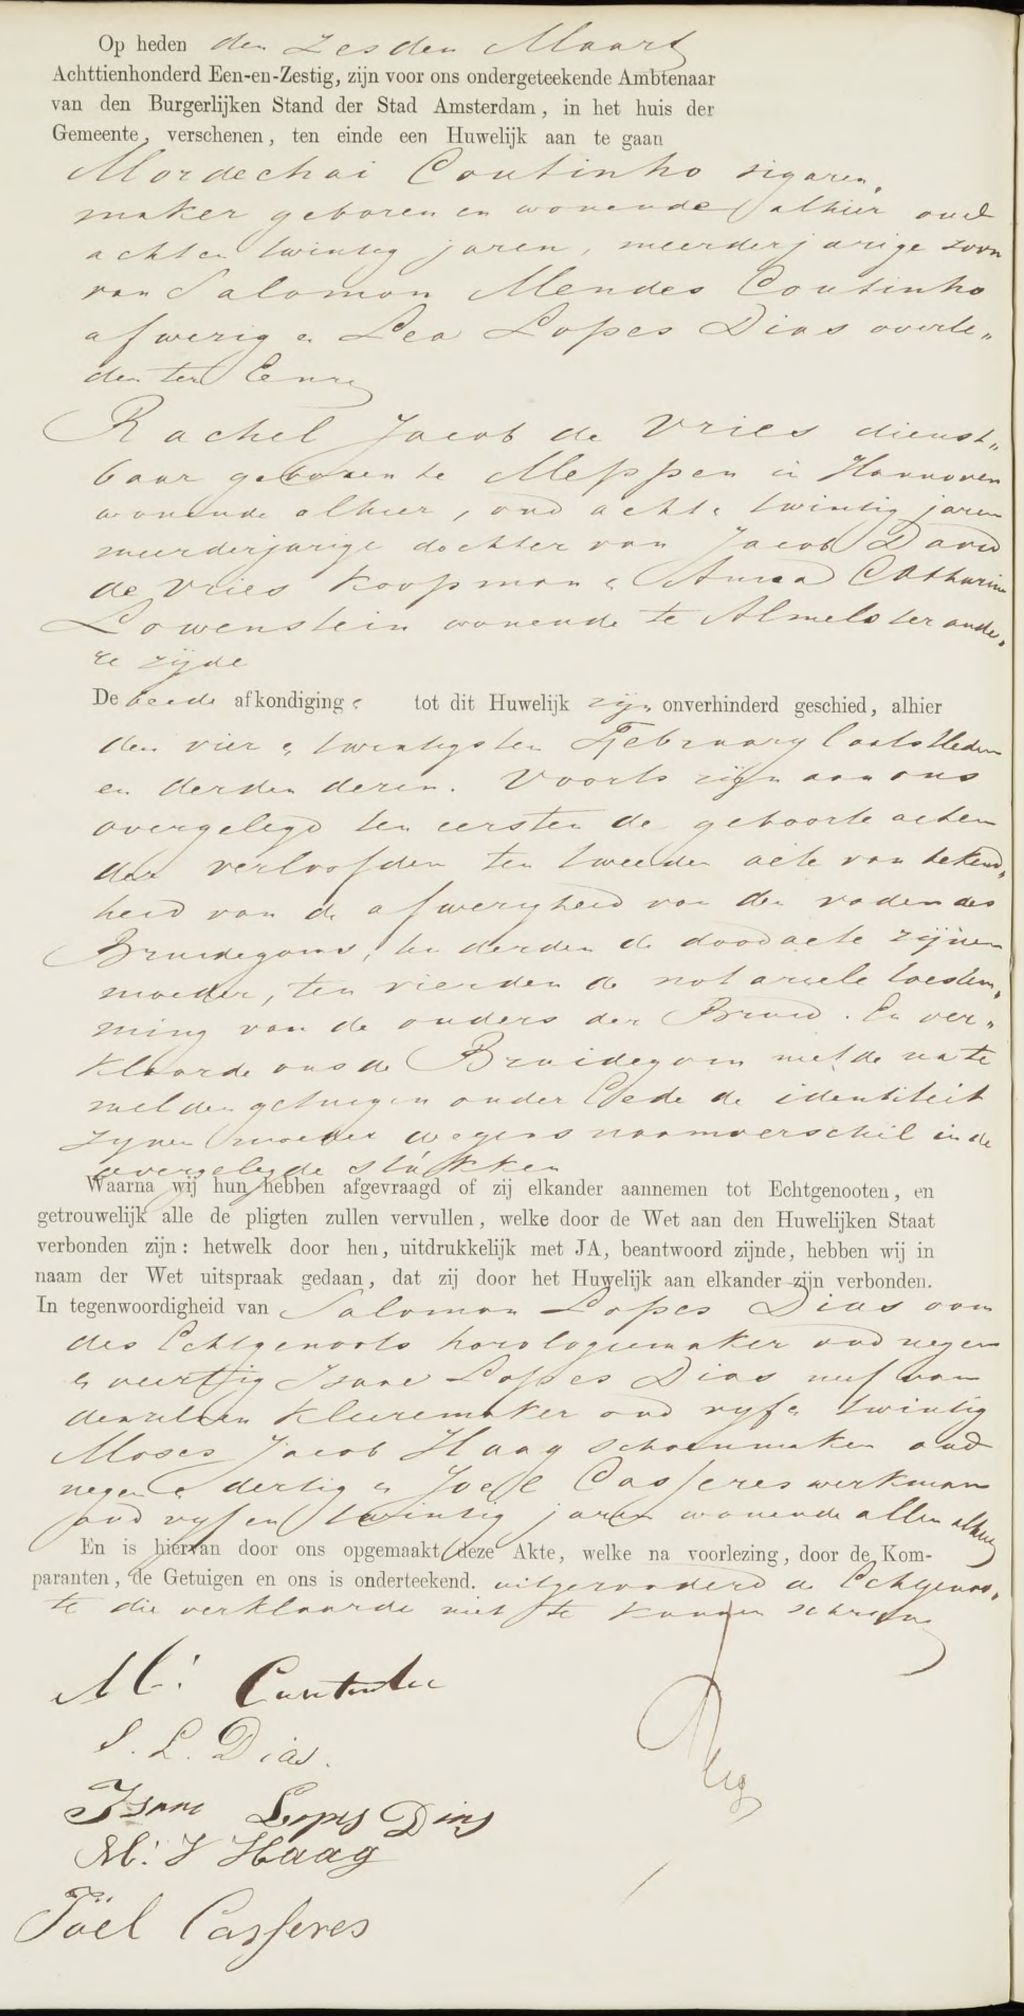 Op heden den zesden Maart
Achttienhonderd Een-en-Zestig, zijn voor ons ondergeteekende Ambtenaar
van den Burgerlijken Stand der Stad Amsterdam, in het huis der
Gemeente, verschenen, ten einde een Huwelijk aan te gaan
Mordechai Coutinho sigaren„
maker geboren en wonende alhier oud
acht en twintig jaren, meerderjarige zoon
van Salomon Mendes Coutinho
afwezig en Lea Lopes Dias overle„
den ter Eenre
Rachel Jacob de Vries dienst„
baar geboren te Meppen in Hannover
wonende alhier, oud acht en twintig jaren
meerderjarige dochter van Jacob David
de Vries Koopman en Anna Catharina
Lowenstein wonende te Almelo ter ande„
re zijde
De beede afkondigingen tot dit Huwelijk zijn onverhinderd geschied, alhier
den vier en twintigsten February laatstleden
en derden dezer. Voorts zijn aan ons
overgelegd ten eersten de geboorte acten
der verloofden ten tweeden acte van bekend„
heid van de afwezigheid van den vader des
Bruidegoms, ten derden de doodacte zijner
moeder, ten vierden de notariele toestem„
ming van de ouders der Bruid. En ver„
klaarde ons de Bruidegom met de na te
melden getuigen onder Eede de identiteit
zyner moeder wegens naamverschil in de
overgelegde stukken
Waarna wij hun hebben afgevraagd of zij elkander aannemen tot Echtgenooten, en
getrouwelijk alle de pligten zullen vervullen, welke door de Wet aan den Huwelijken Staat
verbonden zijn: hetwelk door hen, uitdrukkelijk met JA, beantwoord zijnde, hebben wij in
naam der Wet uitspraak gedaan, dat zij door het Huwelijk aan elkander zijn verbonden.
In tegenwoordigheid van Salomon Lopes Dias oom
des Echtgenoots horologiemaker oud negen
en veertig Isaac Lopes Dias neef van
denzelven Kleermaker oud vyf en twintig
Moses Jacob Haag schoenmaker oud
negen en dertig en Joel Casseres werkman
oud vyf en twintig jaren wonende allen alhier
En is hiervan door ons opgemaakt deze Akte, welke na voorlezing, door de Kom-
paranten, de Getuigen en ons is onderteekend. uitgezonderd de Echtgenoo„
te die verklaarde niet te kunnen schryven
M: Coutinho
S. L. Dias.
Isaac Lopes Dias
M: J Haag
Joël Casseres